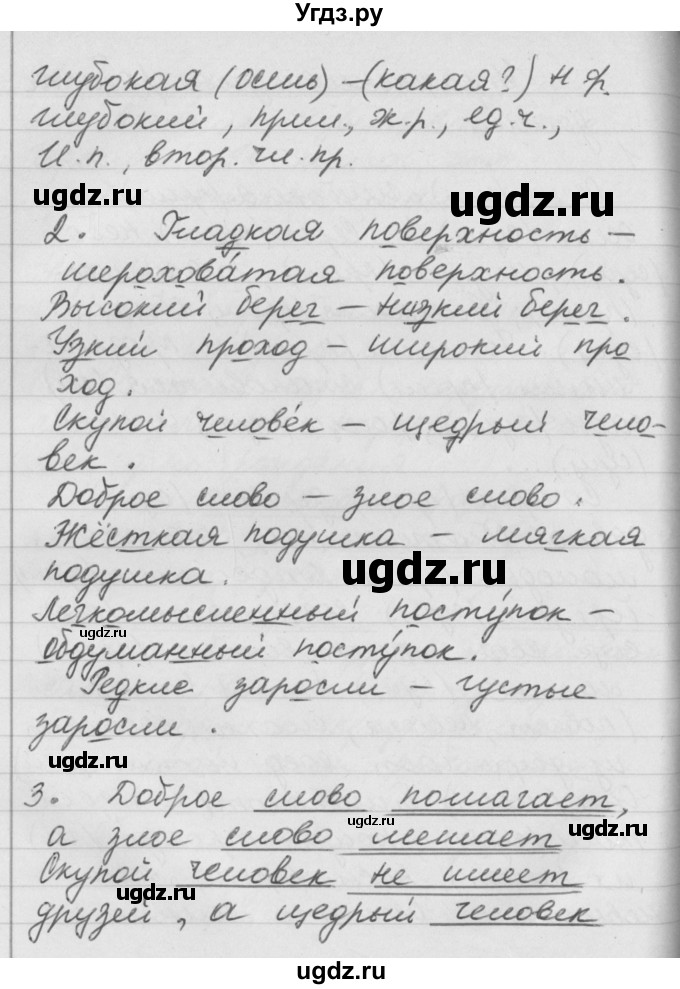 Угдз.ру
глубокая (осень) – (какая?) н.ф.
глубокий, прил., ж.р., ед.ч.,
И.п., втор. чл. пр.
ugdz.ru
ugdz.ru
2. Гладкая поверхность –
шерохова́тая поверхность.
Высокий берег – низкий берег.
Узкий проход – широкий про
ход.
Скупой челове́к – щедрый чело-
век.
Доброе слово – злое слово.
Жёсткая подушка – мягкая
подушка.
ugdz.ru
Легкомысленный посту́пок –
ugdz.ru
обдуманный посту́пок.
Редкие заросли – густые
заросли.
ugdz.ru
3. Доброе слово помагает,
ugdz.ru
а злое слово мешает
ugdz.ru
Скупой человек не имеет
ugdz.ru
друзей, а щедрый человек
ugdz.ru